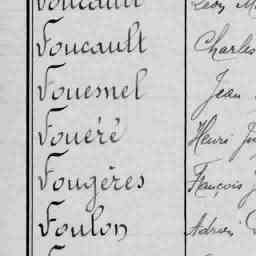 Foucault Léon
Foucault Charles
Fouesnel Jean
Fouéré Henri
Fougères François
Foulon Adrien